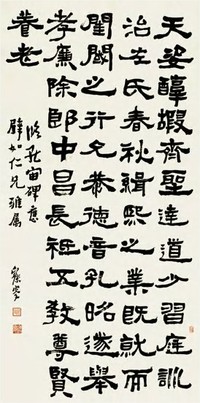 天姿醇嘏齊聖達道少習庭訓
治左氏春秋緝熙之業既就而
閨閾之行允恭德音孔昭遂舉
孝廉除郎中昌長祗五教尊賢
養老
臨孔宙碑應
如仁兄雅屬